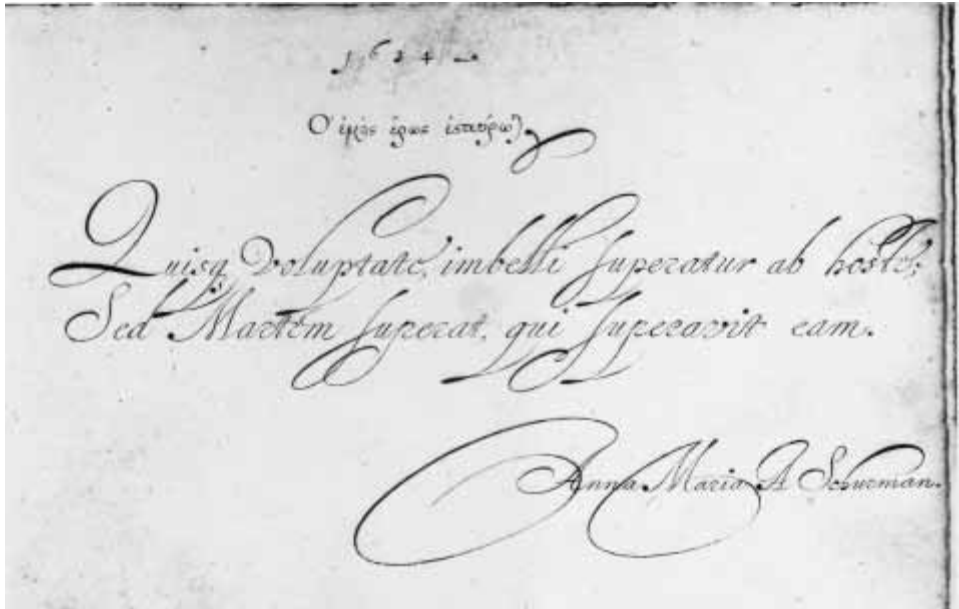 1624
Ὁ ἐμὸς ἔρως ἐσταύρω)
Quisq Voluptate, imbelli superatur ab hoste;
Sed Martem superat, qui superavit eam.
Anna Maria A Schurman.